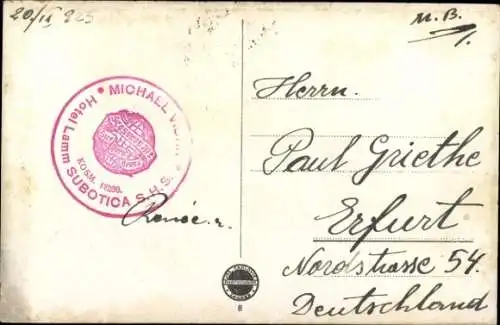 20/II 925
M. B.
MICHALL
Hotel Lamm
KOSM.
SUBOTICA S.H.S.
Renée
Herrn.
Paul Griethe
Erfurt
Nordstrasse 54.
Deutschland
8